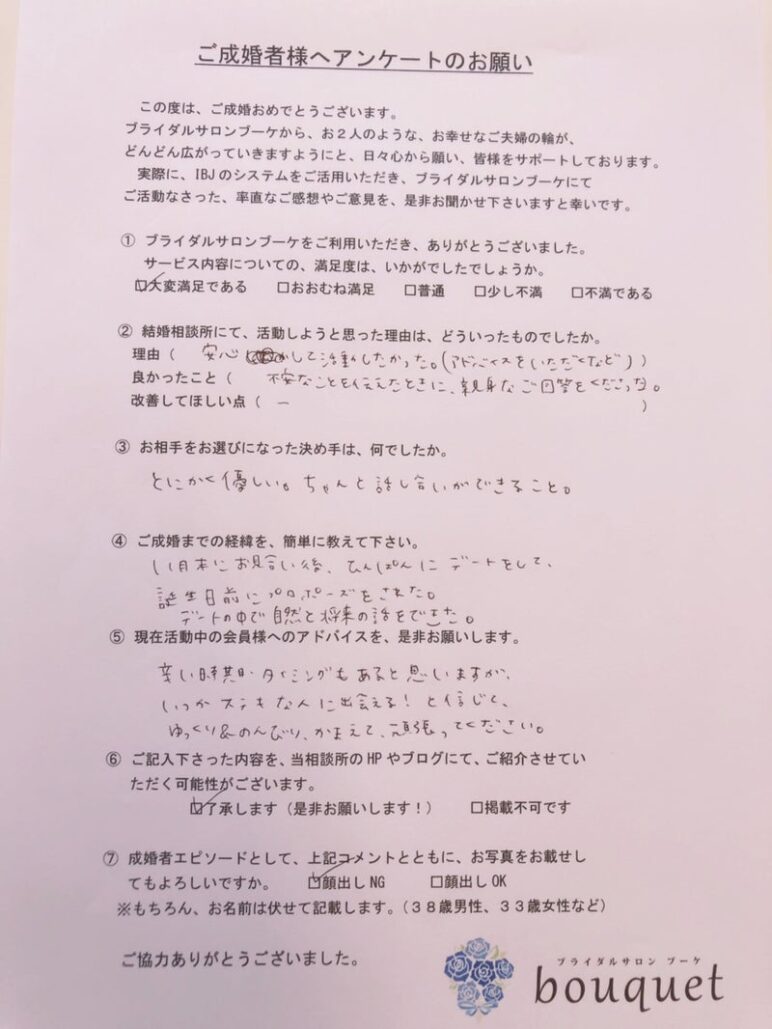 ご成婚者様へアンケートのお願い
この度は、ご成婚おめでとうございます。
ブライダルサロンブーケから、お２人のような、お幸せなご夫婦の輪が、
どんどん広がっていきますようにと、日々心から願い、皆様をサポートしております。
実際に、IBJのシステムをご活用いただき、ブライダルサロンブーケにて
ご活動なさった、率直なご感想やご意見を、是非お聞かせ下さいますと幸いです。
① ブライダルサロンブーケをご利用いただき、ありがとうございました。
サービス内容についての、満足度は、いかがでしたでしょうか。
☑大変満足である □おおむね満足 □普通 □少し不満 □不満である
② 結婚相談所にて、活動しようと思った理由は、どういったものでしたか。
理由（ 安心して活動したかった。(アドバイスをいただくなど) ）
良かったこと（ 不安なことを伝えたときに、親身なご回答をくださった。
改善してほしい点（ ー ）
③ お相手をお選びになった決め手は、何でしたか。
とにかく優しい。ちゃんと話し合いができること。
④ ご成婚までの経緯を、簡単に教えて下さい。
月末にお見合い後、ひんぱんにデートをして、
誕生日前にプロポーズをされた。
デートの中で自然と将来の話をできた。
⑤ 現在活動中の会員様へのアドバイスを、是非お願いします。
辛い時期・タイミングもあると思いますが、
いつかステキな人に出会える！と信じて、
ゆっくり&のんびり、かまえて、頑張ってください。
⑥ ご記入下さった内容を、当相談所のHPやブログにて、ご紹介させてい
ただく可能性がございます。
☑了承します（是非お願いします！） □掲載不可です
⑦ 成婚者エピソードとして、上記コメントとともに、お写真をお載せし
てもよろしいですか。 ☑顔出しNG □顔出しOK
※もちろん、お名前は伏せて記載します。（３８歳男性、３３歳女性など）
ご協力ありがとうございました。
ブライダルサロン ブーケ
bouquet